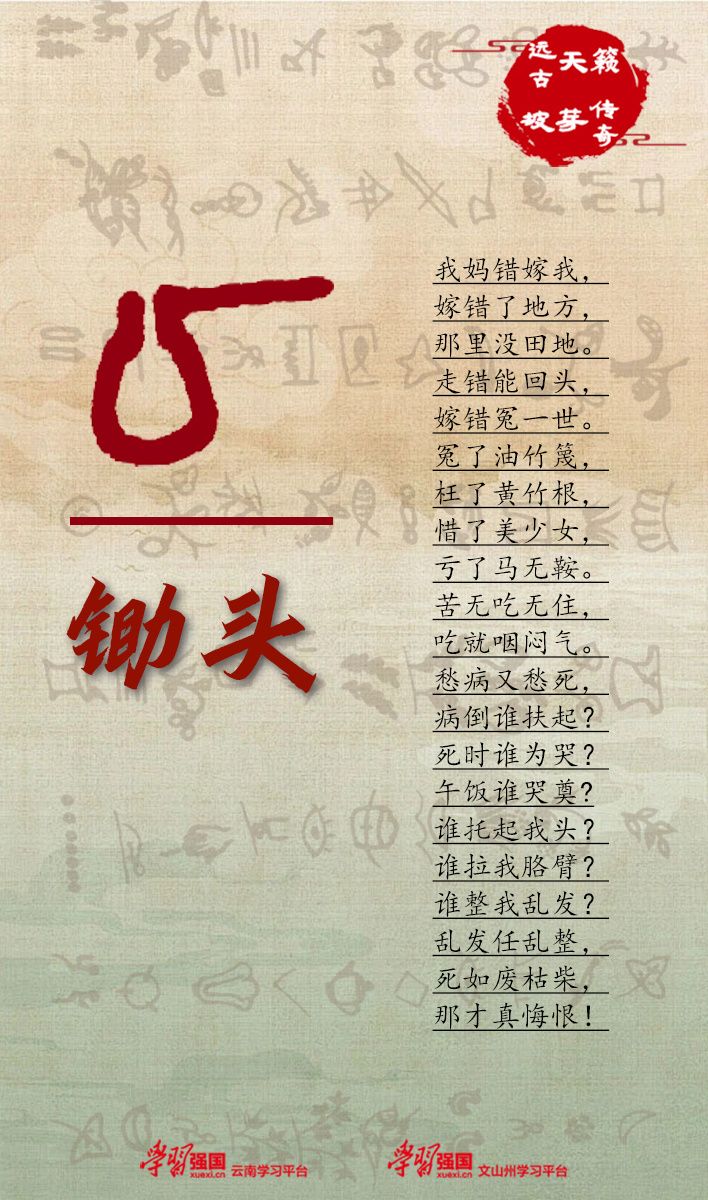 远古天籁
坡芽传奇
锄头
我妈错嫁我，
嫁错了地方，
那里没田地。
走错能回头，
嫁错冤一世。
冤了油竹篾，
枉了黄竹根，
惜了美少女，
亏了马无鞍。
苦无吃无住，
吃就咽闷气。
愁病又愁死，
病倒谁扶起？
死时谁为哭？
午饭谁哭奠？
谁托起我头？
谁拉我胳臂？
谁整我乱发？
乱发任乱整，
死如废枯柴，
那才真悔恨！
学习强国 xuexi.cn 云南学习平台
学习强国 xuexi.cn 文山州学习平台